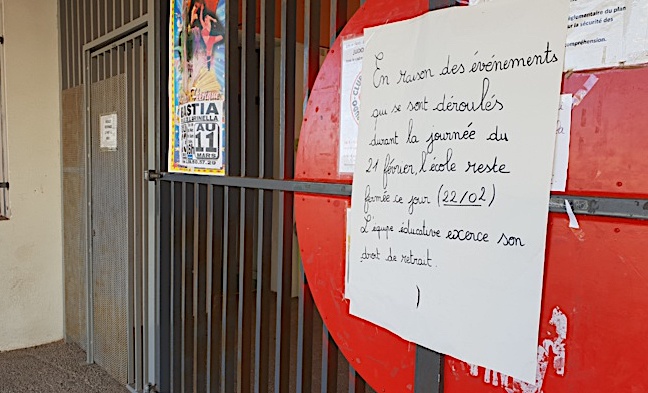 BASTIA
AU
11
MARS
JUDO
CLUB
églementaire du plan
sur la sécurité des
compréhension.
En raison des événements
qui se sont déroulés
durant la journée du
21 février, l'école reste
fermée ce jour (22/02)
L'équipe éducative exerce son
droit de retrait.